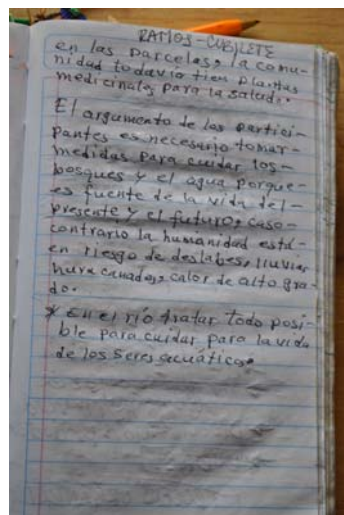 RAMOS-CUBILETE
en las parcelas, la comu-
nidad todavío tien plantas
medicinales para la salud.
El argumento de los partici-
pantes es necesario tomar-
medidas para cuidar los-
bosques y el agua porque-
es fuente de la vida del-
presente y el futuro, caso-
contrario la humanidad está-
en riesgo de deslabes, lluvias
huracanados, calor de alto gra-
do.
* En el río tratar todo posi-
ble para cuidar para la vida
de los seres acuáticos